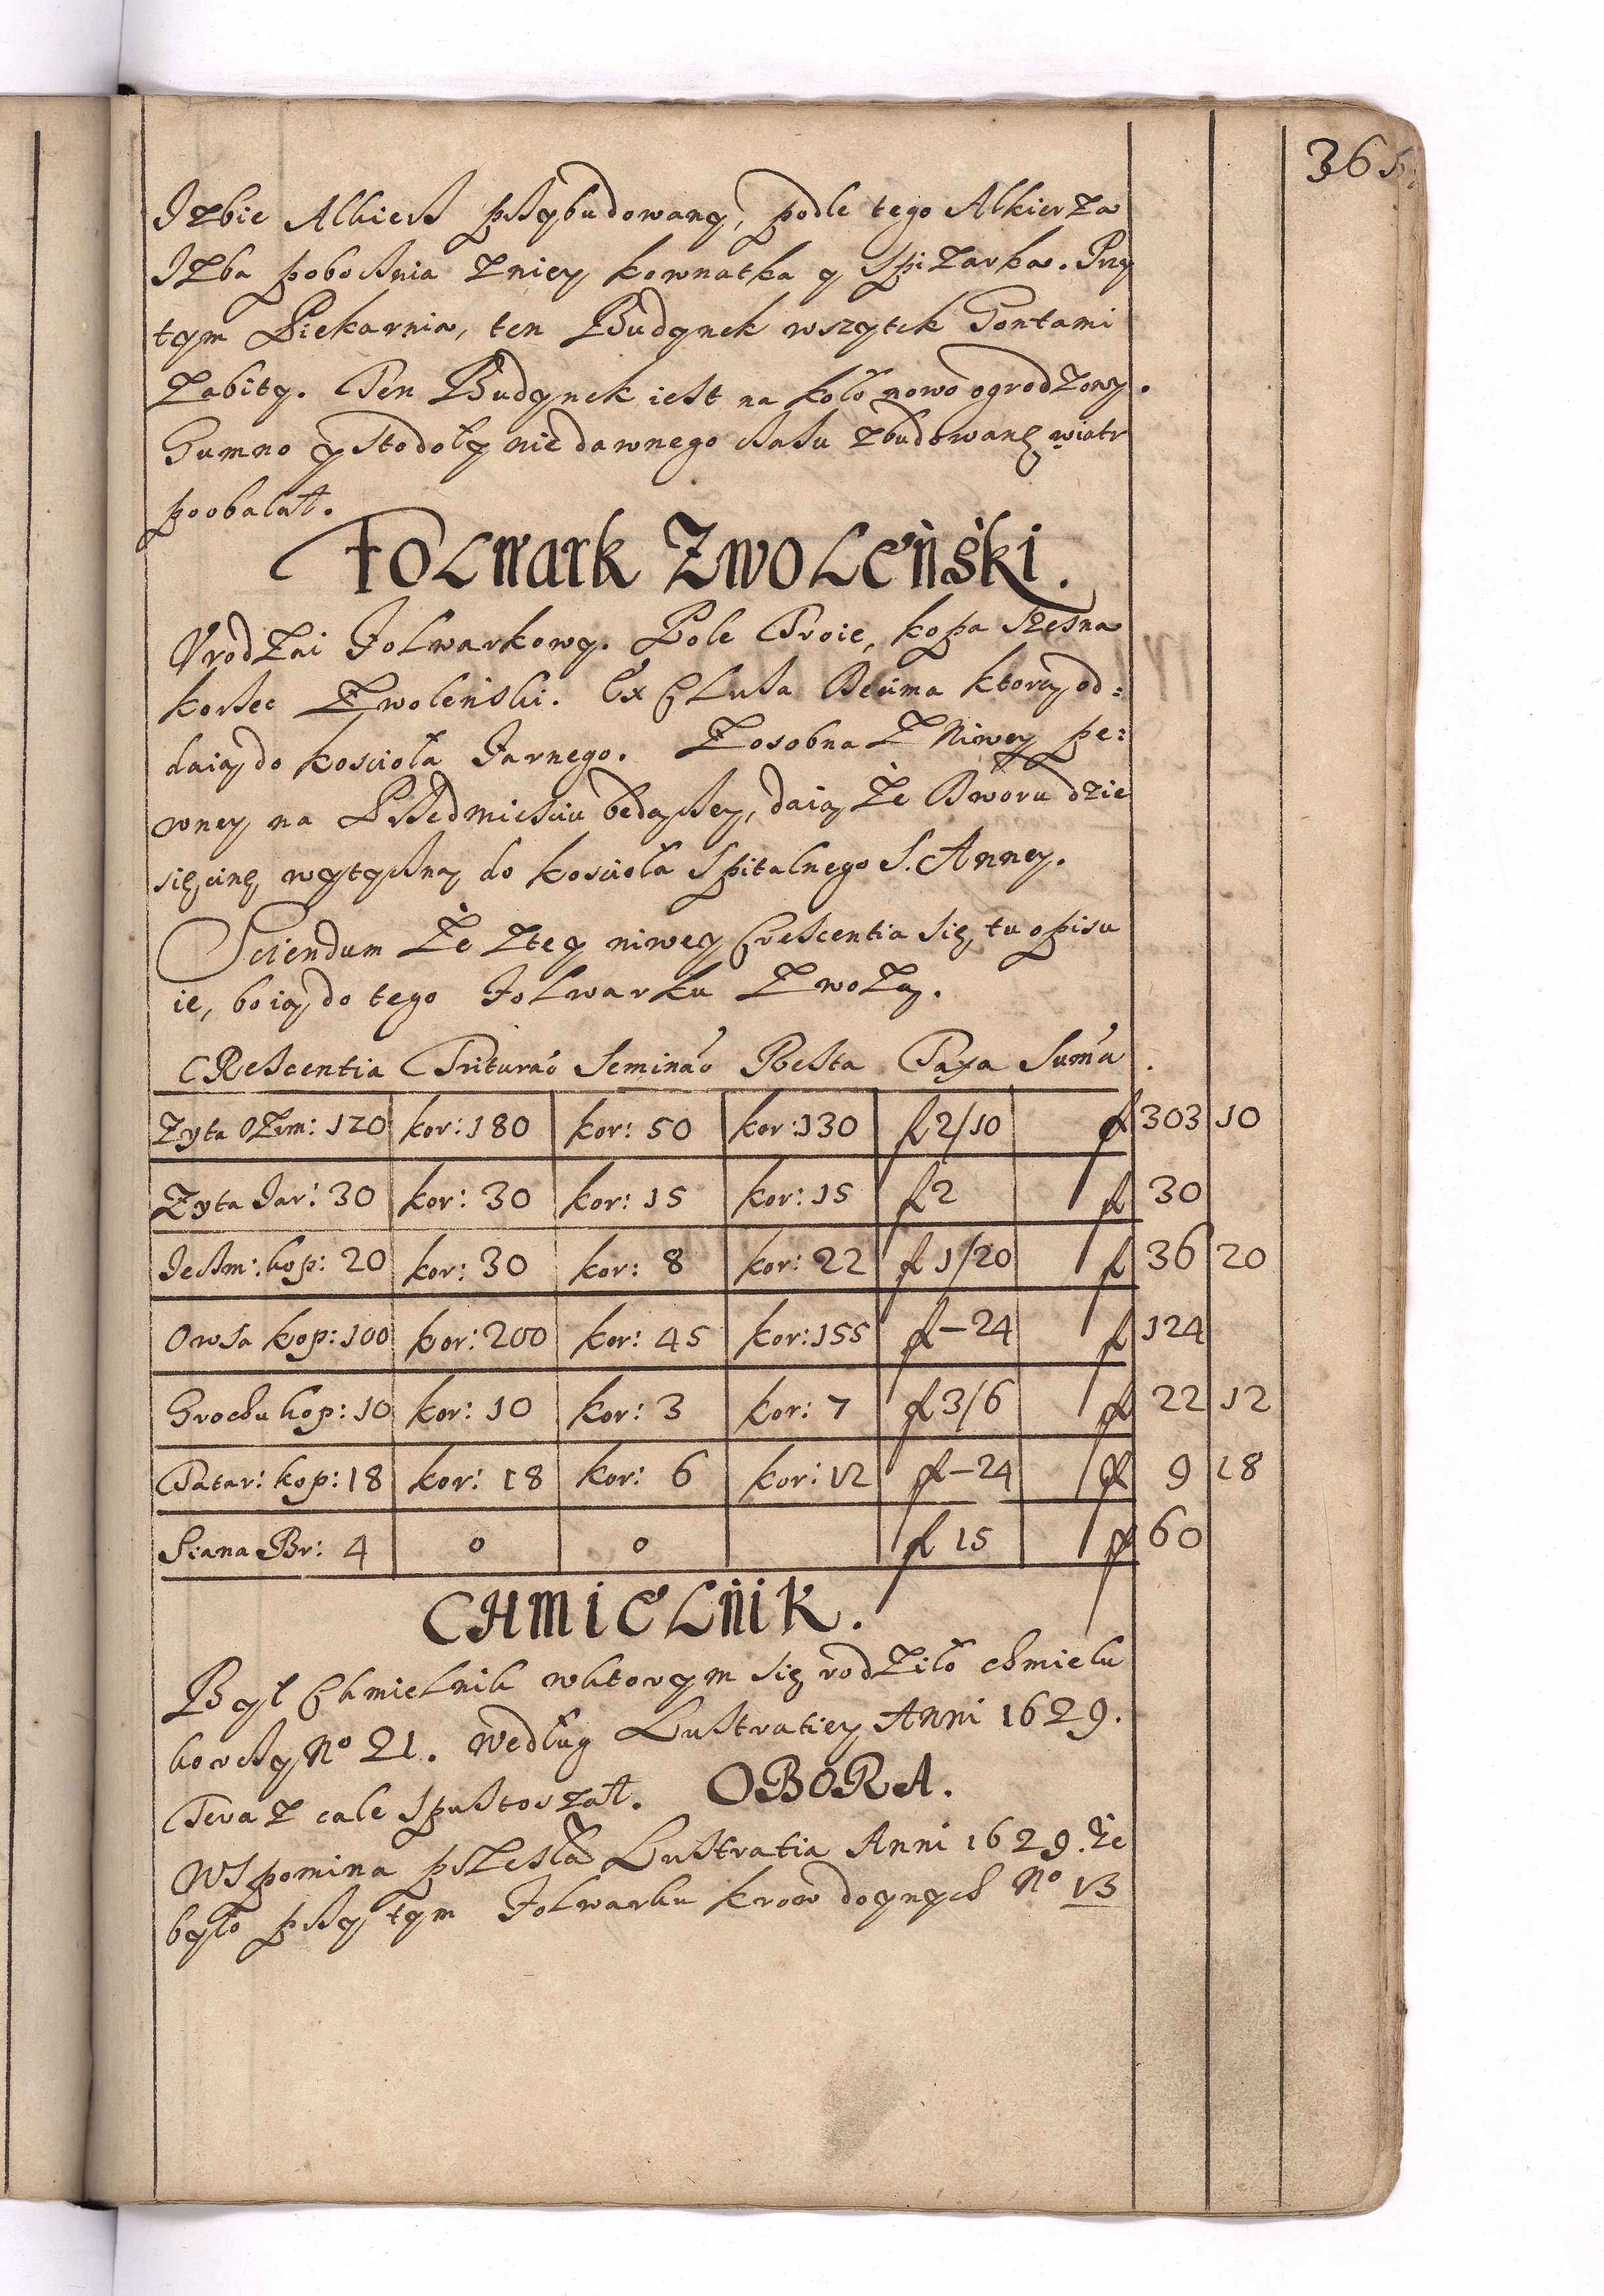 365
Izbie Alkierz przybudowany, podle tego Alkierza
Izba pobocznia z niey kownatka y Spizarka. Przy
tym Piekarnia, ten Budynek wszytek Gontami
zabity. Ten Budynek iest na koło nowo ogrodzony.
Gumno y Stodoły nie dawnego czasu zbudowanę wiatr
poobalał.
Folwark Zwoleński.
Vrodzai Folwarkowy. Pole Troie, kopa czesna
korzec Zwoleński. Ex Clusa Decima ktorą od:
daią do kościoła Farnego. Zosobna z Niwey pe:
wney na Przedmieściu będączey, daią że Dworu dzie
sięcinę wytyczną do kościoła Szpitalnego S. Anney.
Sciendum że z tey niwey Crescentia się tu opisu
ie, bo ią do tego Folwarku zwożą.
Crescentia Triturao Seminao Resta Taxa Suma .
Zyta Ozim: 120 kor: 180 kor: 50 kor: 130 fl 2/10 fl 303 10
Zyta Jar: 30 kor: 30 kor: 15 kor: 15 fl 2 fl 30
Jeczm: kop: 20 kor: 30 kor: 8 kor: 22 fl 1/20 fl 36 20
Owsa kop: 100 kor: 200 kor: 45 kor: 155 fl – 24 fl 124
Grochu kop: 10 kor: 10 kor: 3 kor: 7 fl 3/6 fl 22 12
Tatar: kop: 18 kor: 18 kor: 6 kor: 12 fl – 24 fl 9 18
Siana Br: 4 0 0 fl 15 fl 60
CHMIELNIK.
Był Chmielnik w ktorym się rodziło chmielu
korczy No 21. według Lustratiey Anni 1629.
Teraz cale spustoszał. OBORA.
Wspomina przeszła Lustratia Anni 1629. że
było przy tym Folwarku krow doynych No 13